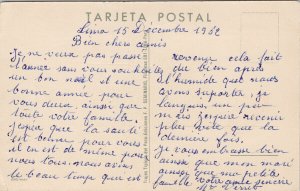 TARJETA POSTAL
Lima 15 Décembre 1952
Bien chers amis
Je ne veux pas passer
l'année sans vous souhaiter
un bon noël et une
bonne année pour
vous deux, ainsi que
toute votre famille.
J'espère que la santé
est bonne pour vous
et en est de même pour
nous, nous avons
le beau temps qui est
revenu, cela fait
du bien après
et humide que nous
avons supporter, je
languis, un peu
mais j'espère revenir
plus forte que la
dernière fois.
Je vous embrasse bien
ainsi que mon mari
ainsi que ma petite
famille. votre amie sincère
Mme